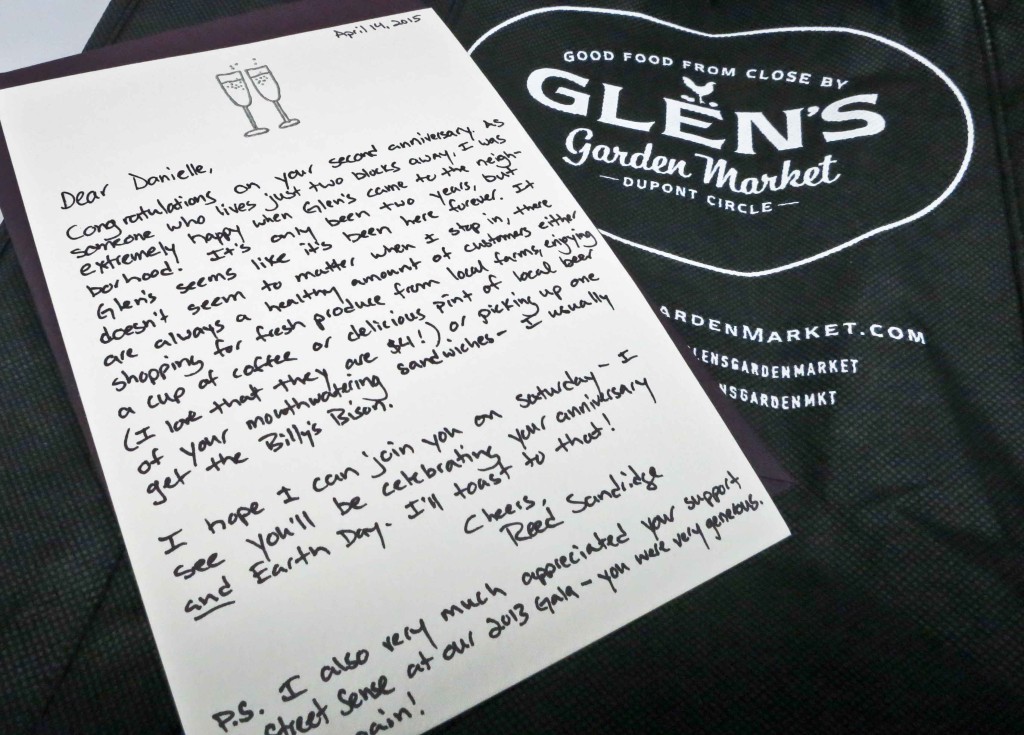 April 14, 2015
Dear Danielle,
Congratulations on your second anniversary. As
someone who lives just two blocks away. I was
extremely happy when Glen's came to the neigh-
borhood! It's only been two years, but
Glen's seems like it's been here forever. It
doesn't seem to matter when I stop in, there
are always a healthy amount of customers either
shopping for fresh produce from local farms, enjoying
a cup of coffee or delicious pint of local beer
(I love that they are $4!) or picking up one
of your mouthwatering sandwiches - I usually
get the Billy's Bison.
I hope I can join you on Saturday - I
see you'll be celebrating your anniversary
and Earth Day. I'll toast to that!
Cheers,
Reed Sandridge
P.S. I also very much appreciated your support
Street Sense at our 2013 Gala - you were very generous.
GOOD FOOD FROM CLOSE BY
GLEN'S
Garden Market
DUPONT CIRCLE
ARDENMARKET.COM
LENSGARDENMARKET
NSGARDENMKT